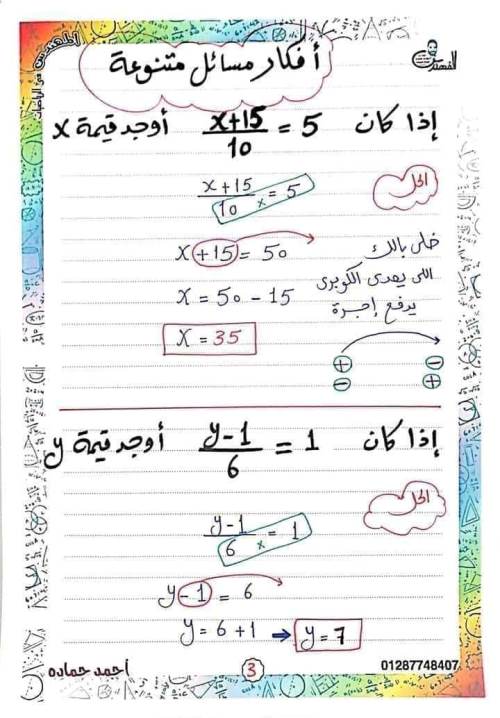 أفكار مسائل متنوعة
إذا كان x+15/10 = 5 أوجد قيمة x
الحل
x+15/10 × = 5
x +15 = 50
خلي بالك
اللي يعدى الكوبري
يدفع إجرة
x = 50 - 15
x = 35
+ -
- +
إذا كان y-1/6 = 1 أوجد قيمة y
الحل
y-1/6 × = 1
y -1 = 6
y = 6 + 1 → y = 7
احمد حماده
3
01287748407